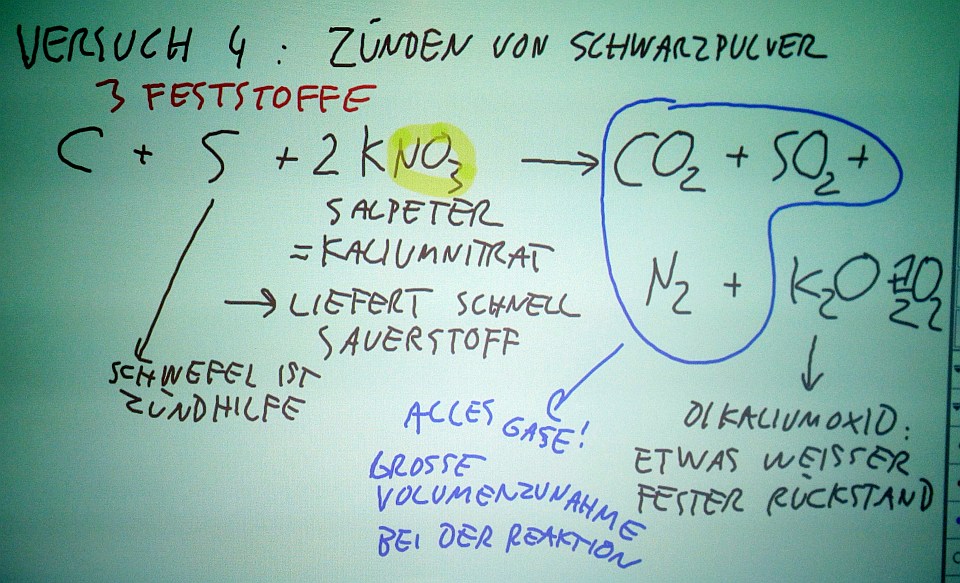 VERSUCH 4 : ZÜNDEN VON SCHWARZPULVER
3 FESTSTOFFE
C + S + 2 KNO3 → CO2 + SO2 +
N2 + K2O
SALPETER
= KALIUMNITRAT
→ LIEFERT SCHNELL
SAUERSTOFF
SCHWEFEL IST
ZÜNDHILFE
ALLES GASE!
GROSSE
VOLUMENZUNAHME
BEI DER REAKTION
DIKALIUMOXID:
ETWAS WEISSER
FESTER RÜCKSTAND